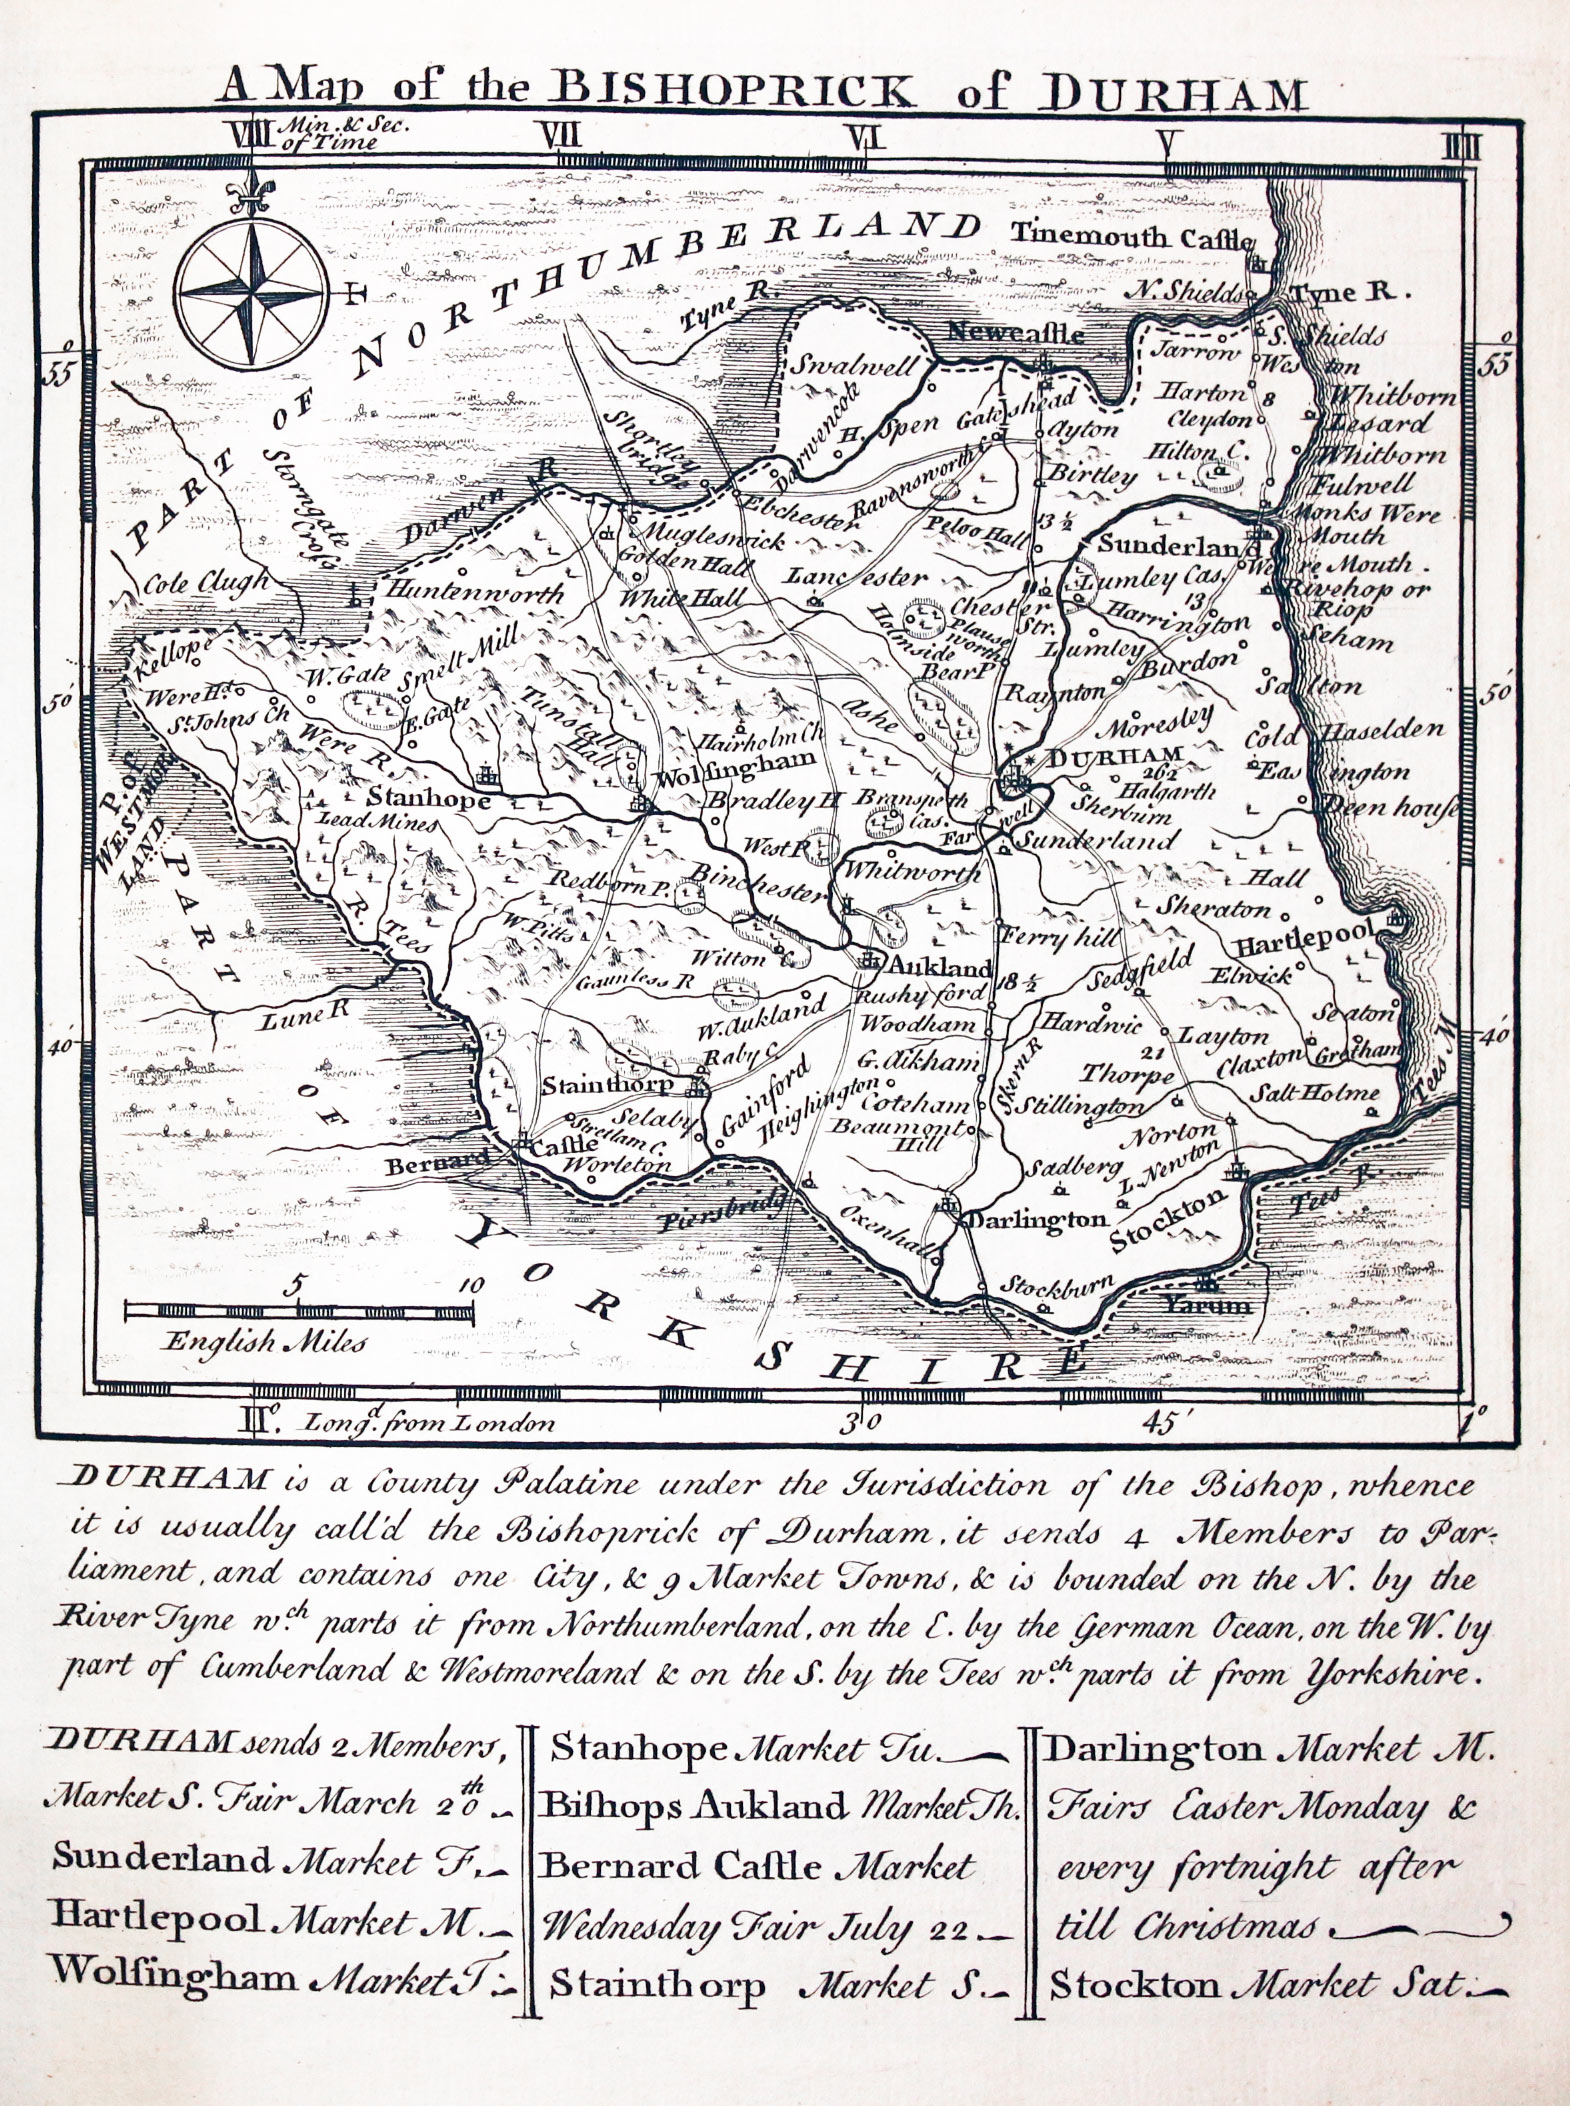 A Map of the BISHOPRICK of DURHAM
VIII Min. & Sec. of Time VII VI V IIII
PART OF NORTHUMBERLAND
Tinemouth Caſtle
N. Shields
Tyne R.
Tyne R.
Newcaſtle
S. Shields
Swalwell
Jarrow
Wes ton
55
55
Harton 8
Whitborn
Darwencot
H. Spen
Gateshead
Cleydon
Lesard
Ayton
Shortley bridge
Hilton C.
Whitborn
Storngate Croſs
Ravensworth C.
Birtley
Fulwell
Darwen R
Ebchester
13 ½
Monks Were Mouth
Mugleswick
Peloo Hall
Sunderland
Golden Hall
We re Mouth.
Cole Clugh
Huntenworth
White Hall
Lancester
Lumley Cas.
Rivehop or Riop
Chester Str.
Harrington
13
Holmside
Plausworth
Seham
Kellope
Smelt Mill
Lumley
Burdon
Bear P
W. Gate
Were Hd.
Raynton
Salton
50'
50'
St. Johns Ch
E. Gate
Tunstall Hall
Ashe
Moresley
Were R.
Hairholm Ch
Cold Haselden
P. of WESTMORLAND
Wolſingham
DURHAM
262
Eas ington
Stanhope
Bradley H
Branspeth Cas.
Halgarth
Sherburn
Deen houſe
Lead Mines
Farwell
West P.
Sunderland
Whitworth
Redborn P.
Binchester
Hall
R. Tees
W. Pitts
Sheraton
Ferry hill
Hartlepool
Wilton C.
Aukland
Sedgfield
Elwick
Gaunless R
Rushy ford
18 ½
Lune R
W. Aukland
Woodham
Hardwic
Layton
Seaton
40'
40'
Raby C.
G. Aikham
21
Claxton
Gretham
Stainthorp
Skern R
Thorpe
Tees M
Gainford
Heighington
Coteham
Stillington
Salt Holme
Selaby
Beaumont Hill
Stretlam C.
Norton
Bernard Caſtle
Worleton
Sadberg
L. Newton
Piersbridg
Stockton
Tees R.
Oxenhall
Darlington
Stockburn
Yarum
PART OF YORKSHIRE
5 10
English Miles
II°. Longd. from London 30 45' 1°
DURHAM is a County Palatine under the Jurisdiction of the Bishop, whence
it is usually call'd the Bishoprick of Durham, it sends 4 Members to Par-
liament, and contains one City, & 9 Market Towns, & is bounded on the N. by the
River Tyne wch. parts it from Northumberland, on the E. by the German Ocean, on the W. by
part of Cumberland & Westmoreland & on the S. by the Tees wch. parts it from Yorkshire.
DURHAM sends 2 Members,
Market S. Fair March 20th
Sunderland Market F.
Hartlepool Market M.
Wolſingham Market T.
Stanhope Market Tu.
Biſhops Aukland Market Th.
Bernard Caſtle Market
Wednesday Fair July 22
Stainthorp Market S.
Darlington Market M.
Fairs Easter Monday &
every fortnight after
till Christmas
Stockton Market Sat.